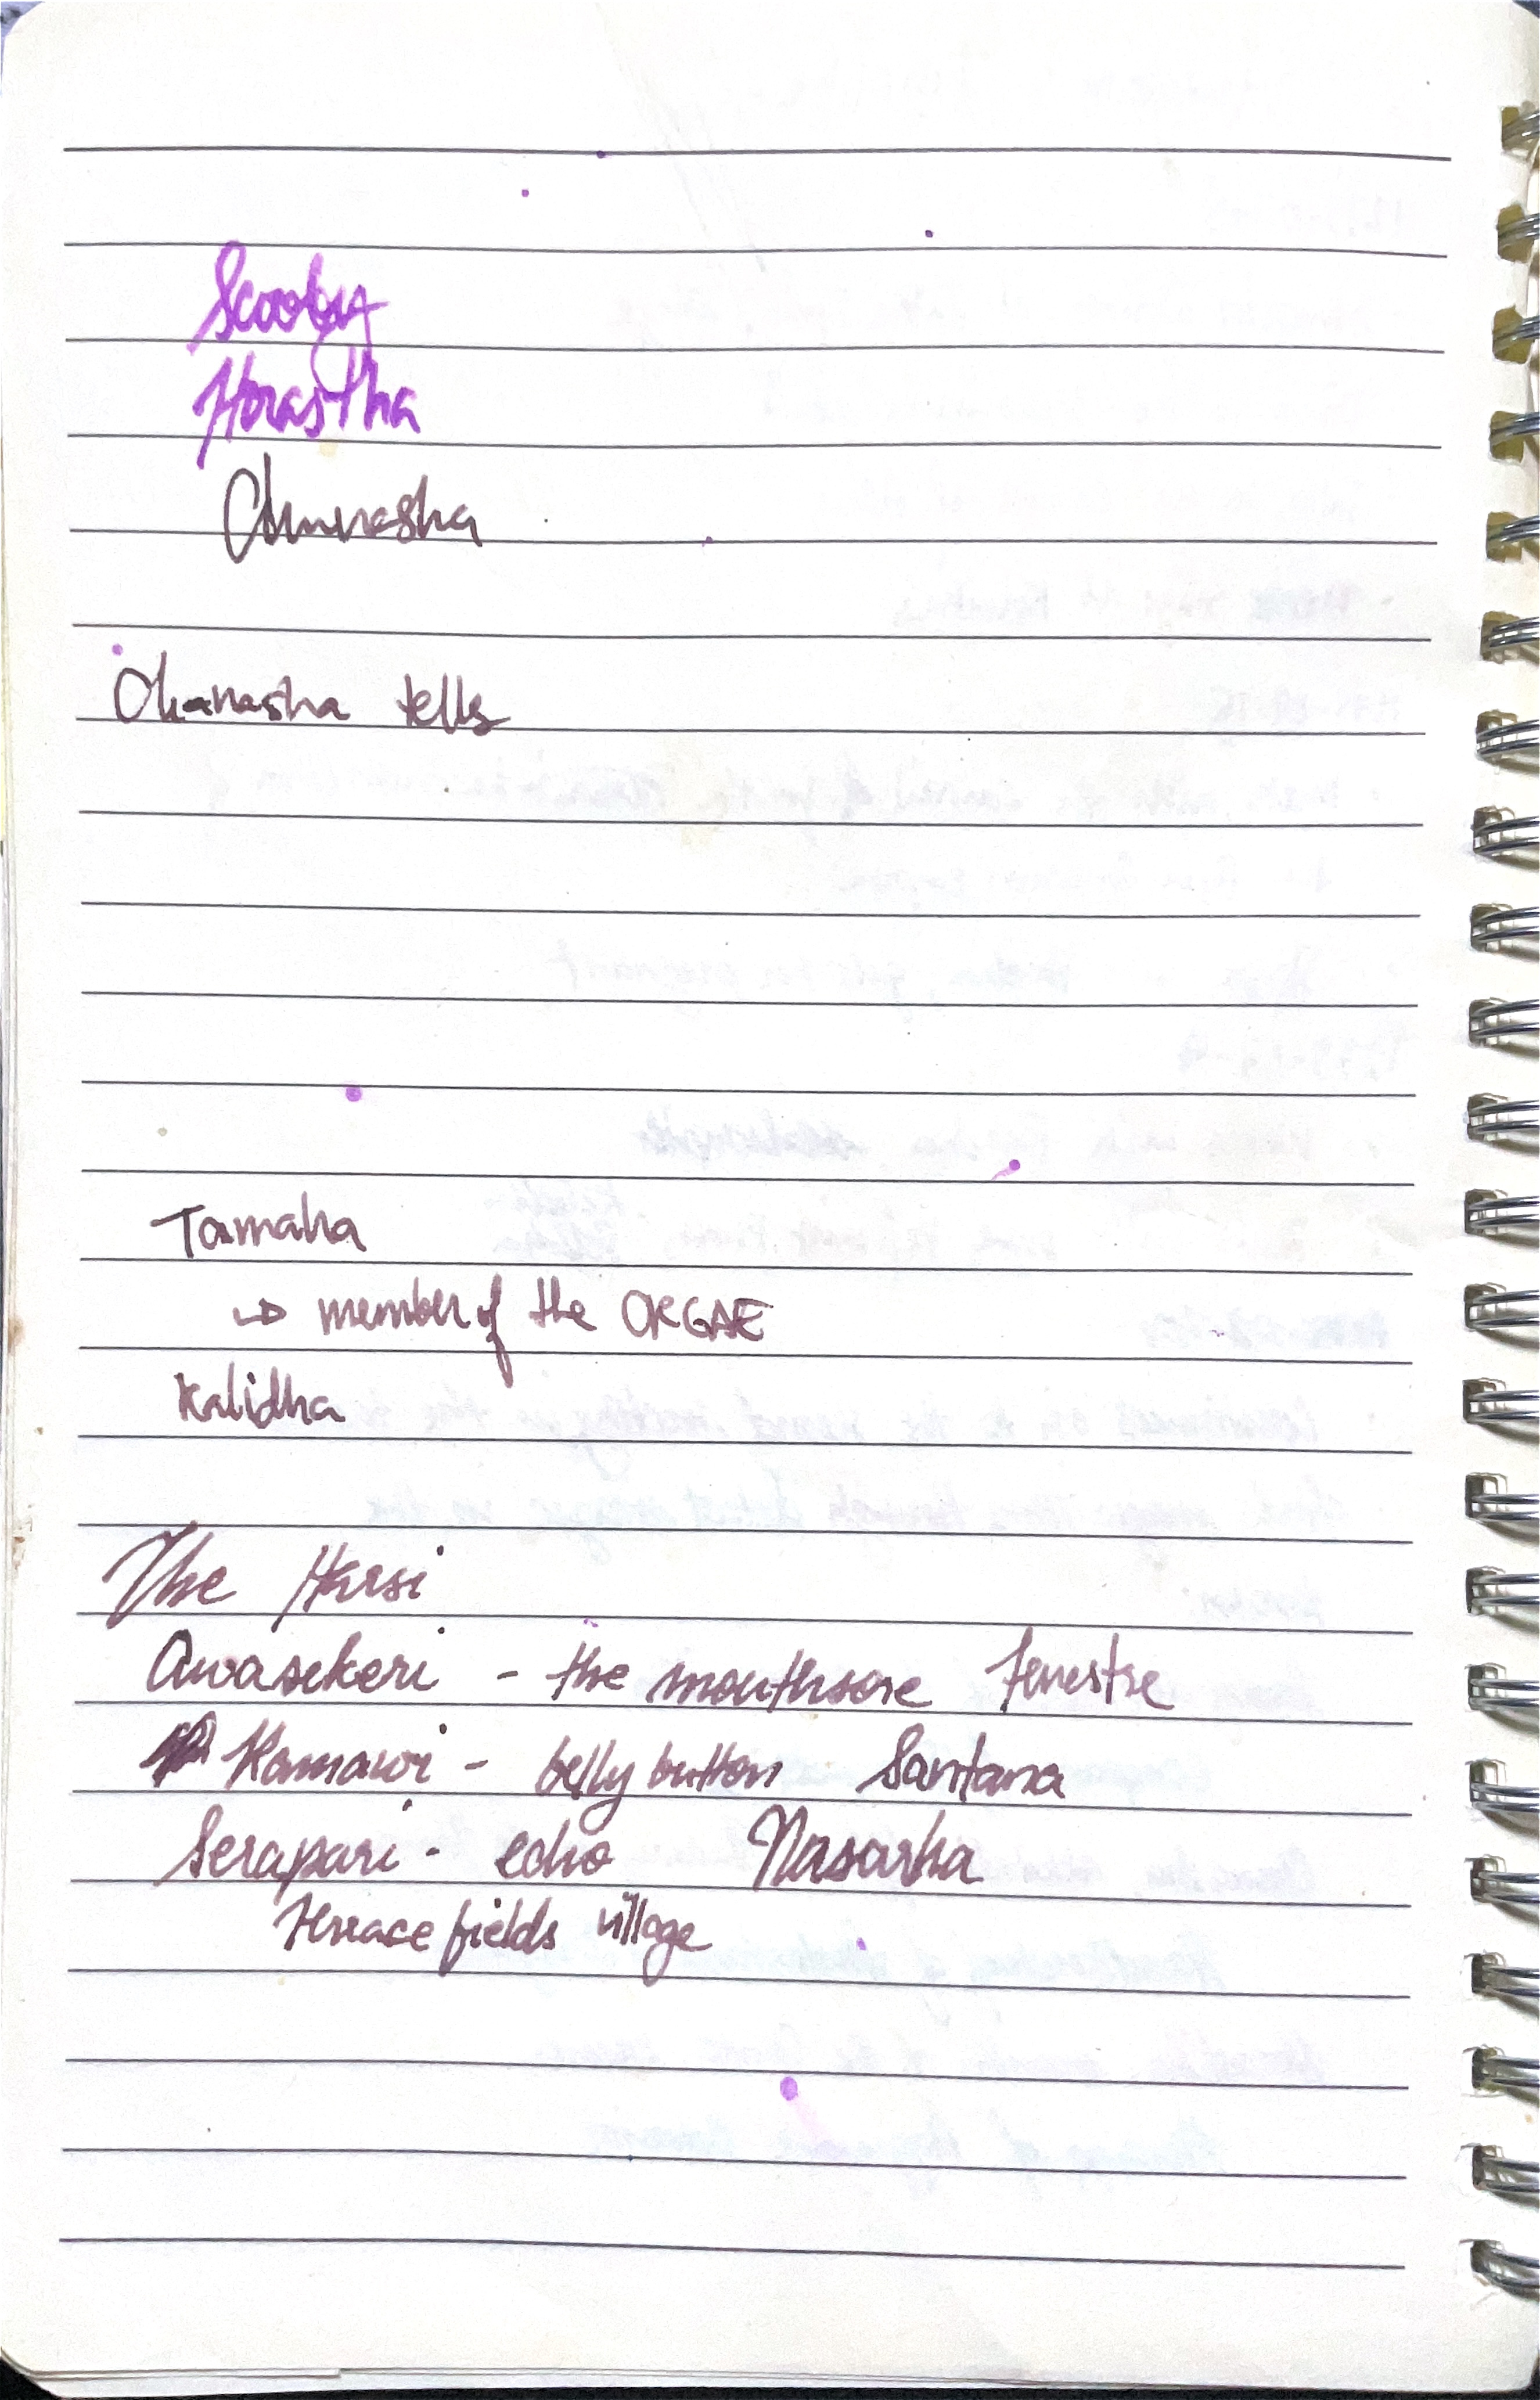 Scooby
Horastha
Chunasha
Chanasha tells
Tamaha
↳ member of the ORGAE
Kalidha
The Harsi
Awasekeri - the mouthsore fenestre
Kamawi - belly button Santana
Serapari - echo Nasarha
terrace fields village